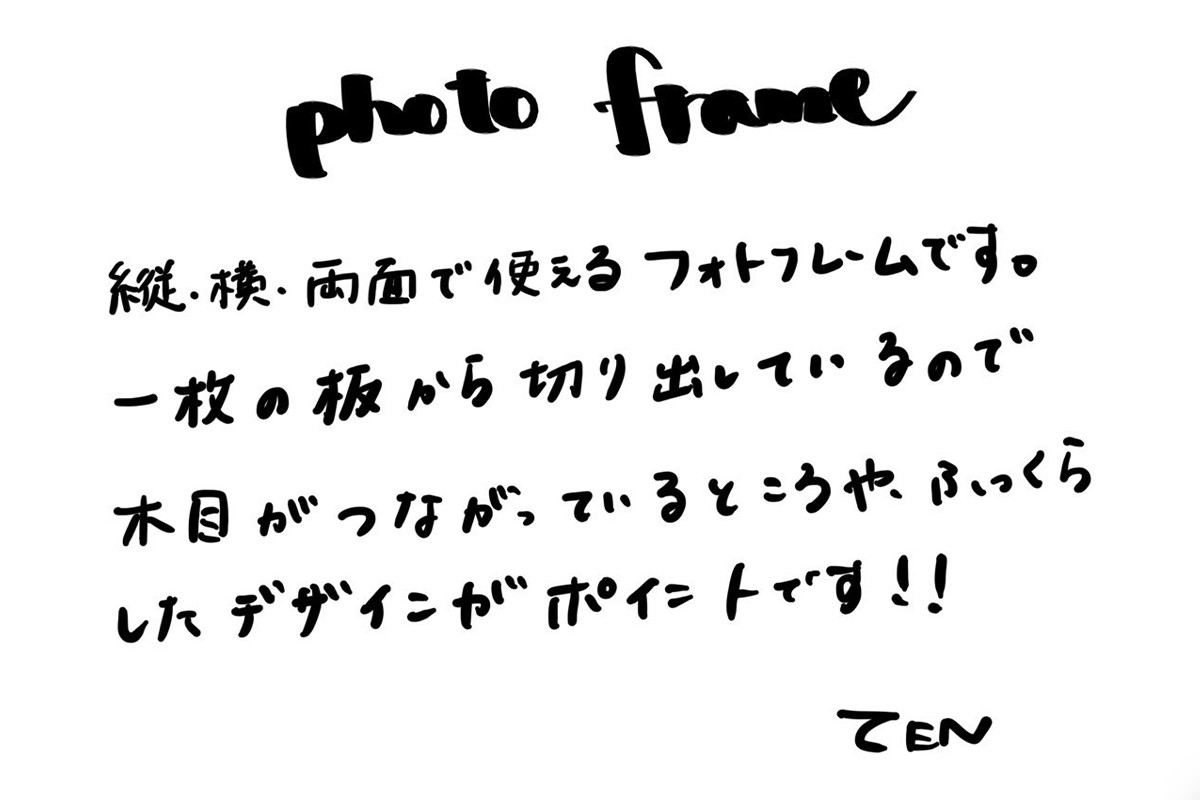 photo frame
縦・横・両面で使えるフォトフレームです。
一枚の板から切り出しているので
木目がつながっているところや、ふっくら
したデザインがポイントです!!
TEN